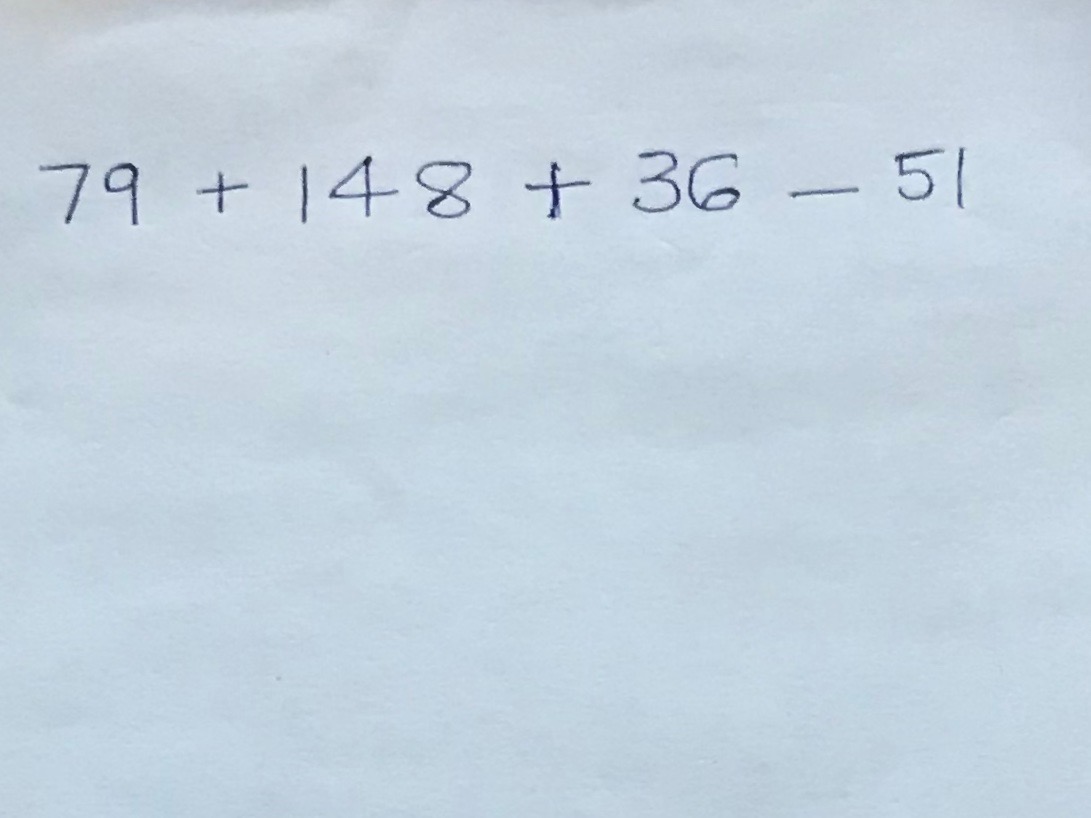 79 + 148 + 36 - 51